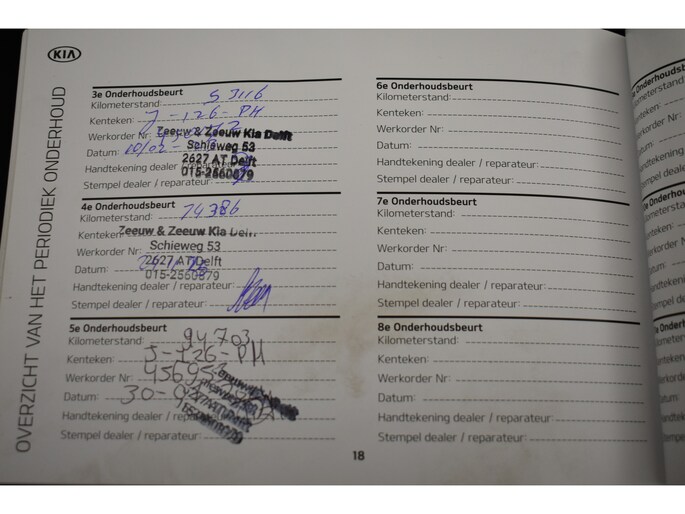 KIA
OVERZICHT VAN HET PERIODIEK ONDERHOUD
3e Onderhoudsbeurt
Kilometerstand: 53116
Kenteken: J-126-PH
Werkorder Nr:
Zeeuw & Zeeuw Kia Delft
Datum:
Schieweg 53
2627 AT Delft
Handtekening dealer / reparateur:
015-2560879
Stempel dealer / reparateur:
4e Onderhoudsbeurt
Kilometerstand: 74386
Kenteken:
Zeeuw & Zeeuw Kia Delft
Werkorder Nr:
Schieweg 53
Datum:
2627 AT Delft
015-2560879
Handtekening dealer / reparateur:
Stempel dealer / reparateur:
5e Onderhoudsbeurt
Kilometerstand: 94703
Kenteken: J-126-PH
Werkorder Nr:
Datum:
Handtekening dealer / reparateur:
Stempel dealer / reparateur:
6e Onderhoudsbeurt
Kilometerstand:
Kenteken:
Werkorder Nr:
Datum:
Handtekening dealer / reparateur:
Stempel dealer / reparateur:
7e Onderhoudsbeurt
Kilometerstand:
Kenteken:
Werkorder Nr:
Datum:
Handtekening dealer / reparateur:
Stempel dealer / reparateur:
8e Onderhoudsbeurt
Kilometerstand:
Kenteken:
Werkorder Nr:
Datum:
Handtekening dealer / reparateur:
Stempel dealer / reparateur:
18